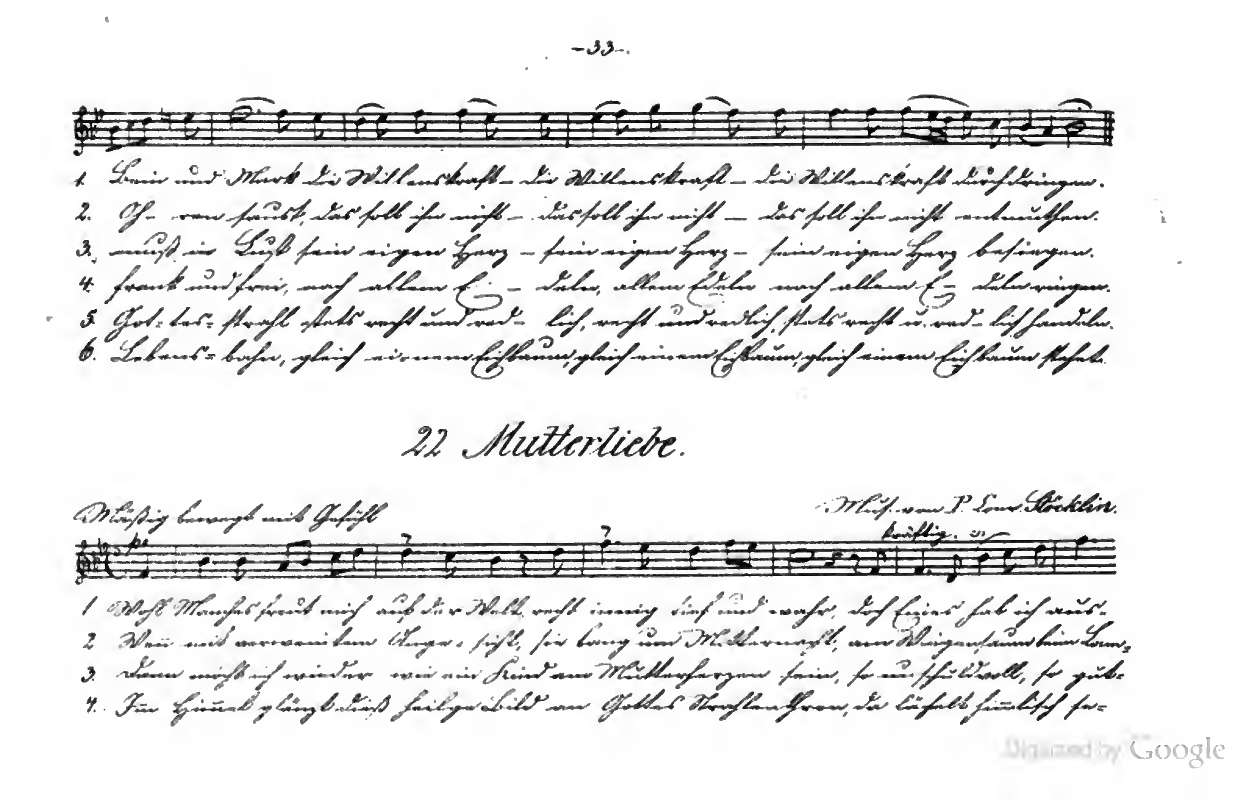 -33-.
1. Bein und Mark die Willenskraft - die Willenskraft - die Willenskraft durchdringen.
2. Oh- ren saust, das soll ihn nicht - das soll ihn nicht - das soll ihn nicht entmuthen.
3. muß in Lust sein eigen Herz - sein eigen Herz - sein eigen Herz besiegen.
4. frank und frei, nach allem E - deln, allem Edeln nach allem E - deln ringen.
5. Got-tes-strahl stets recht und red- lich, recht und redlich, stets recht u. red-lich handeln.
6. Lebens-bahn, gleich ei-nem Eichbaum, gleich einem Eichbaum, gleich einem Eichbaum stehet.
22 Mutterliebe.
Mäßig bewegt mit Gefühl
Mus. von P. Conr. Stöcklin.
kräftig.
1 Wohl Manches freut mich auf der Welt, recht innig tief und wahr, doch Eines hab ich aus-
2 Wenn mit verweintem Ange-sicht, sie lang um Mitternacht, am Wiegensaum beim Lam-
3. Dann möcht ich wieder wie ein Kind am Mutterherzen sein, so unschuldvoll, so gut-
4. Im Himmel glänzt dieß heilge Bild an Gottes Strahlenthron, da lächelt himmlisch se-
Digitized by Google